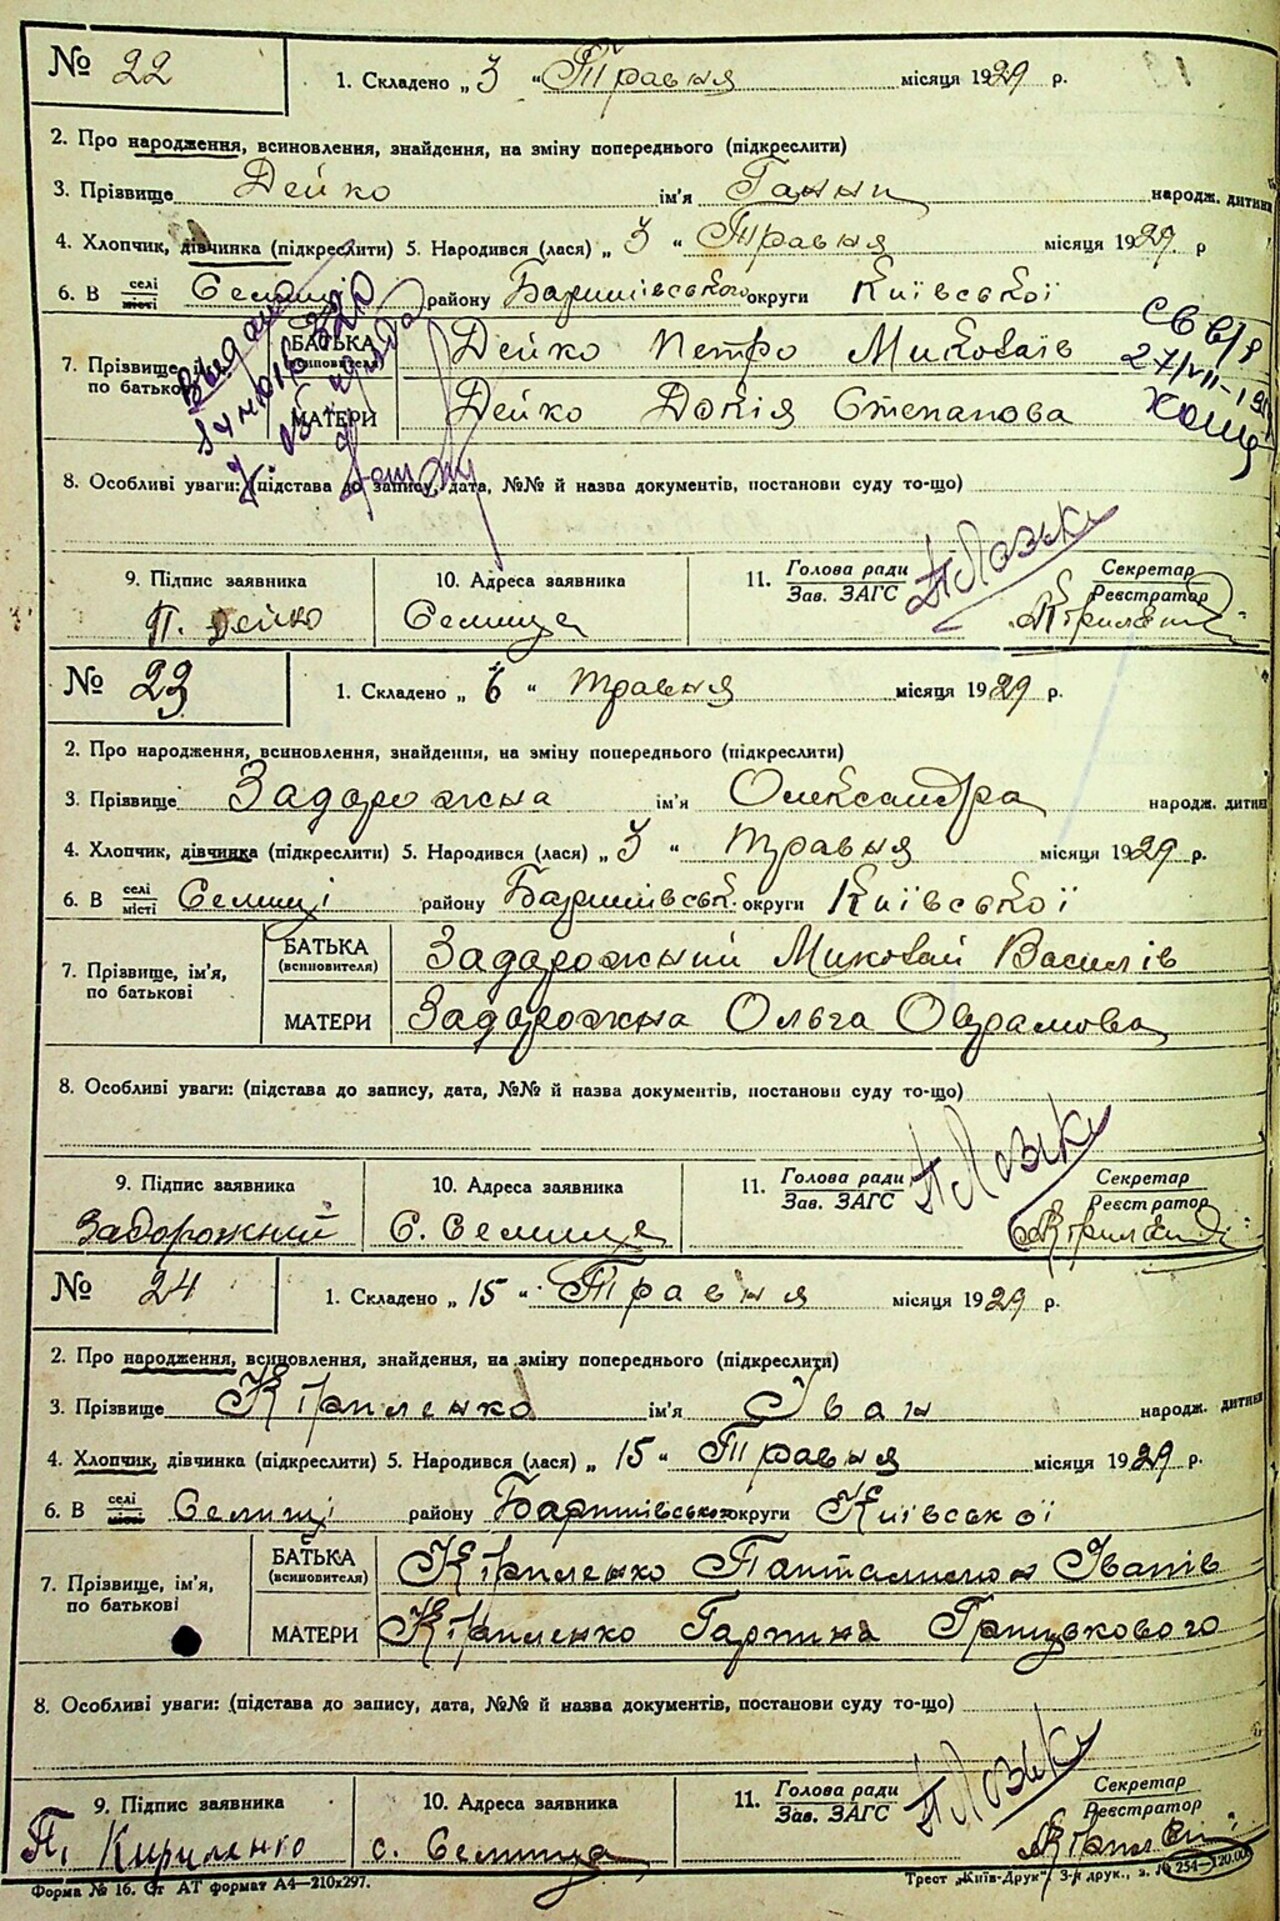 № 22
1. Складено „ 3 “ Травня місяця 1929 р.
2. Про народження, всиновлення, знайдення, на зміну попереднього (підкреслити)
3. Прізвище Дейко ім’я Ганни народж. дитини
4. Хлопчик, дівчинка (підкреслити) 5. Народився (лася) „ 3 “ Травня місяця 1929 р
6. В селі місті Селищі району Баришівського округи Київської
7. Прізвище, ім’я, по батькові
БАТЬКА (всиновителя) Дейко Петро Миколаїв
МАТЕРИ Дейко Докія Степанова
8. Особливі уваги: (підстава до запису, дата, №№ й назва документів, постанови суду то-що)
9. Підпис заявника 10. Адреса заявника 11. Голова ради Зав. ЗАГС Секретар Реєстратор
П. Дейко Селище
№ 23
1. Складено „ 6 “ травня місяця 1929 р.
2. Про народження, всиновлення, знайдення, на зміну попереднього (підкреслити)
3. Прізвище Задорожна ім’я Олександра народж. дитини
4. Хлопчик, дівчинка (підкреслити) 5. Народився (лася) „ 3 “ травня місяця 1929 р.
6. В селі місті Селищі району Баришівськ. округи Київської
7. Прізвище, ім’я, по батькові
БАТЬКА (всиновителя) Задорожний Миколай Василів
МАТЕРИ Задорожна Ольга Оврамова
8. Особливі уваги: (підстава до запису, дата, №№ й назва документів, постанови суду то-що)
9. Підпис заявника 10. Адреса заявника 11. Голова ради Зав. ЗАГС Секретар Реєстратор
Задорожний С. Селище
№ 24
1. Складено „ 15 “ Травня місяця 1929 р.
2. Про народження, всиновлення, знайдення, на зміну попереднього (підкреслити)
3. Прізвище Кириленко ім’я Іван народж. дитини
4. Хлопчик, дівчинка (підкреслити) 5. Народився (лася) „ 15 “ Травня місяця 1929 р.
6. В селі місті Селищі району Баришівського округи Київської
7. Прізвище, ім’я, по батькові
БАТЬКА (всиновителя) Кириленко Панталимон Іванів
МАТЕРИ Кириленко Гарпина Грицькового
8. Особливі уваги: (підстава до запису, дата, №№ й назва документів, постанови суду то-що)
9. Підпис заявника 10. Адреса заявника 11. Голова ради Зав. ЗАГС Секретар Реєстратор
П. Кириленко с. Селище
Форма № 16. Ст АТ формат А4—210х297. Трест „Київ-Друк“. 3-я друк., з. № 254—120.000